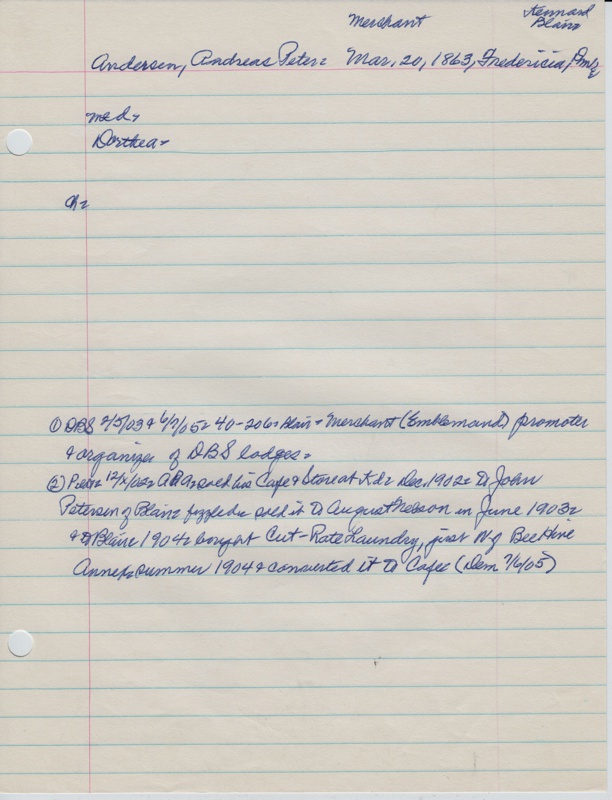 Merchant
Kennard
Blair
Andersen, Andreas Peter= Mar. 20, 1863, Fredericia, Dmk
med=
Dorthea=
Ch=
① DBS 2/5/03 & 6/7/05= 40-206= Blair= Merchant (Emblemand) promoter
& organizer of DBS lodges=
② 12/ /02= APA= sold his Cafe & Store at Kd= Dec. 1902= to John
Petersen of Blair= fizzled= sold it to August Nelson in June 1903=
& to Blair 1904= bought Cut-Rate Laundry, just N of Bee Hive
Annex= summer 1904 & converted it to Cafe (Dem 7/6/05)